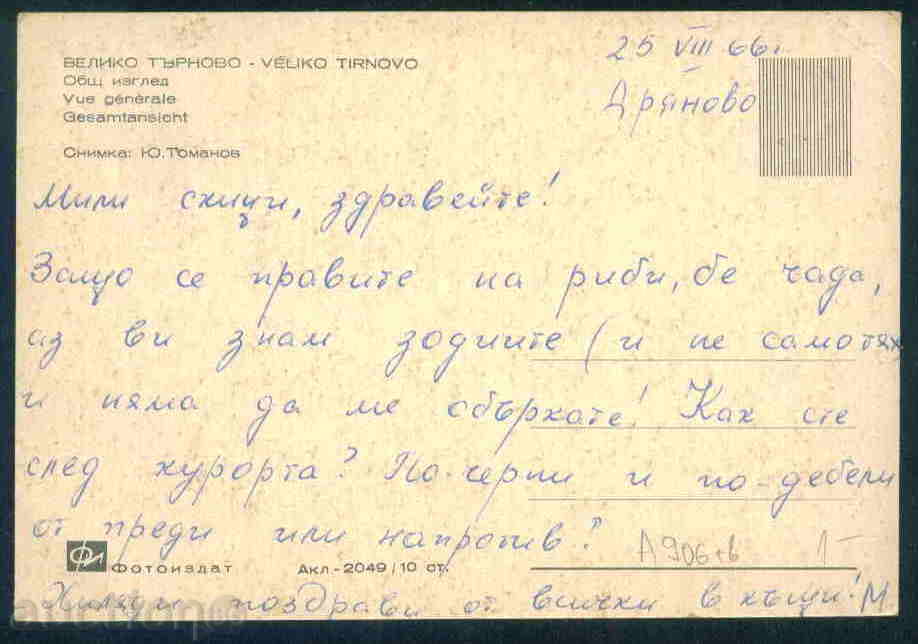 ВЕЛИКО ТЪРНОВО - VÉLIKO TIRNOVO
Общ изглед
Vue générale
Gesamtansicht
Снимка: Ю. Томанов
25 VIII 66 г.
Дряново
Мили скици, здравейте!
Защо се правите на риби, бе чада,
аз ви знам зодиите (и не само тях
и няма да ме объркате! Как сте
след курорта? По-черни и по-дебели
от преди или напротив?
Фотоиздат
Акл-2049/10 ст.
А906+в 1-
Хиляди поздрави от всички в къщи! М.